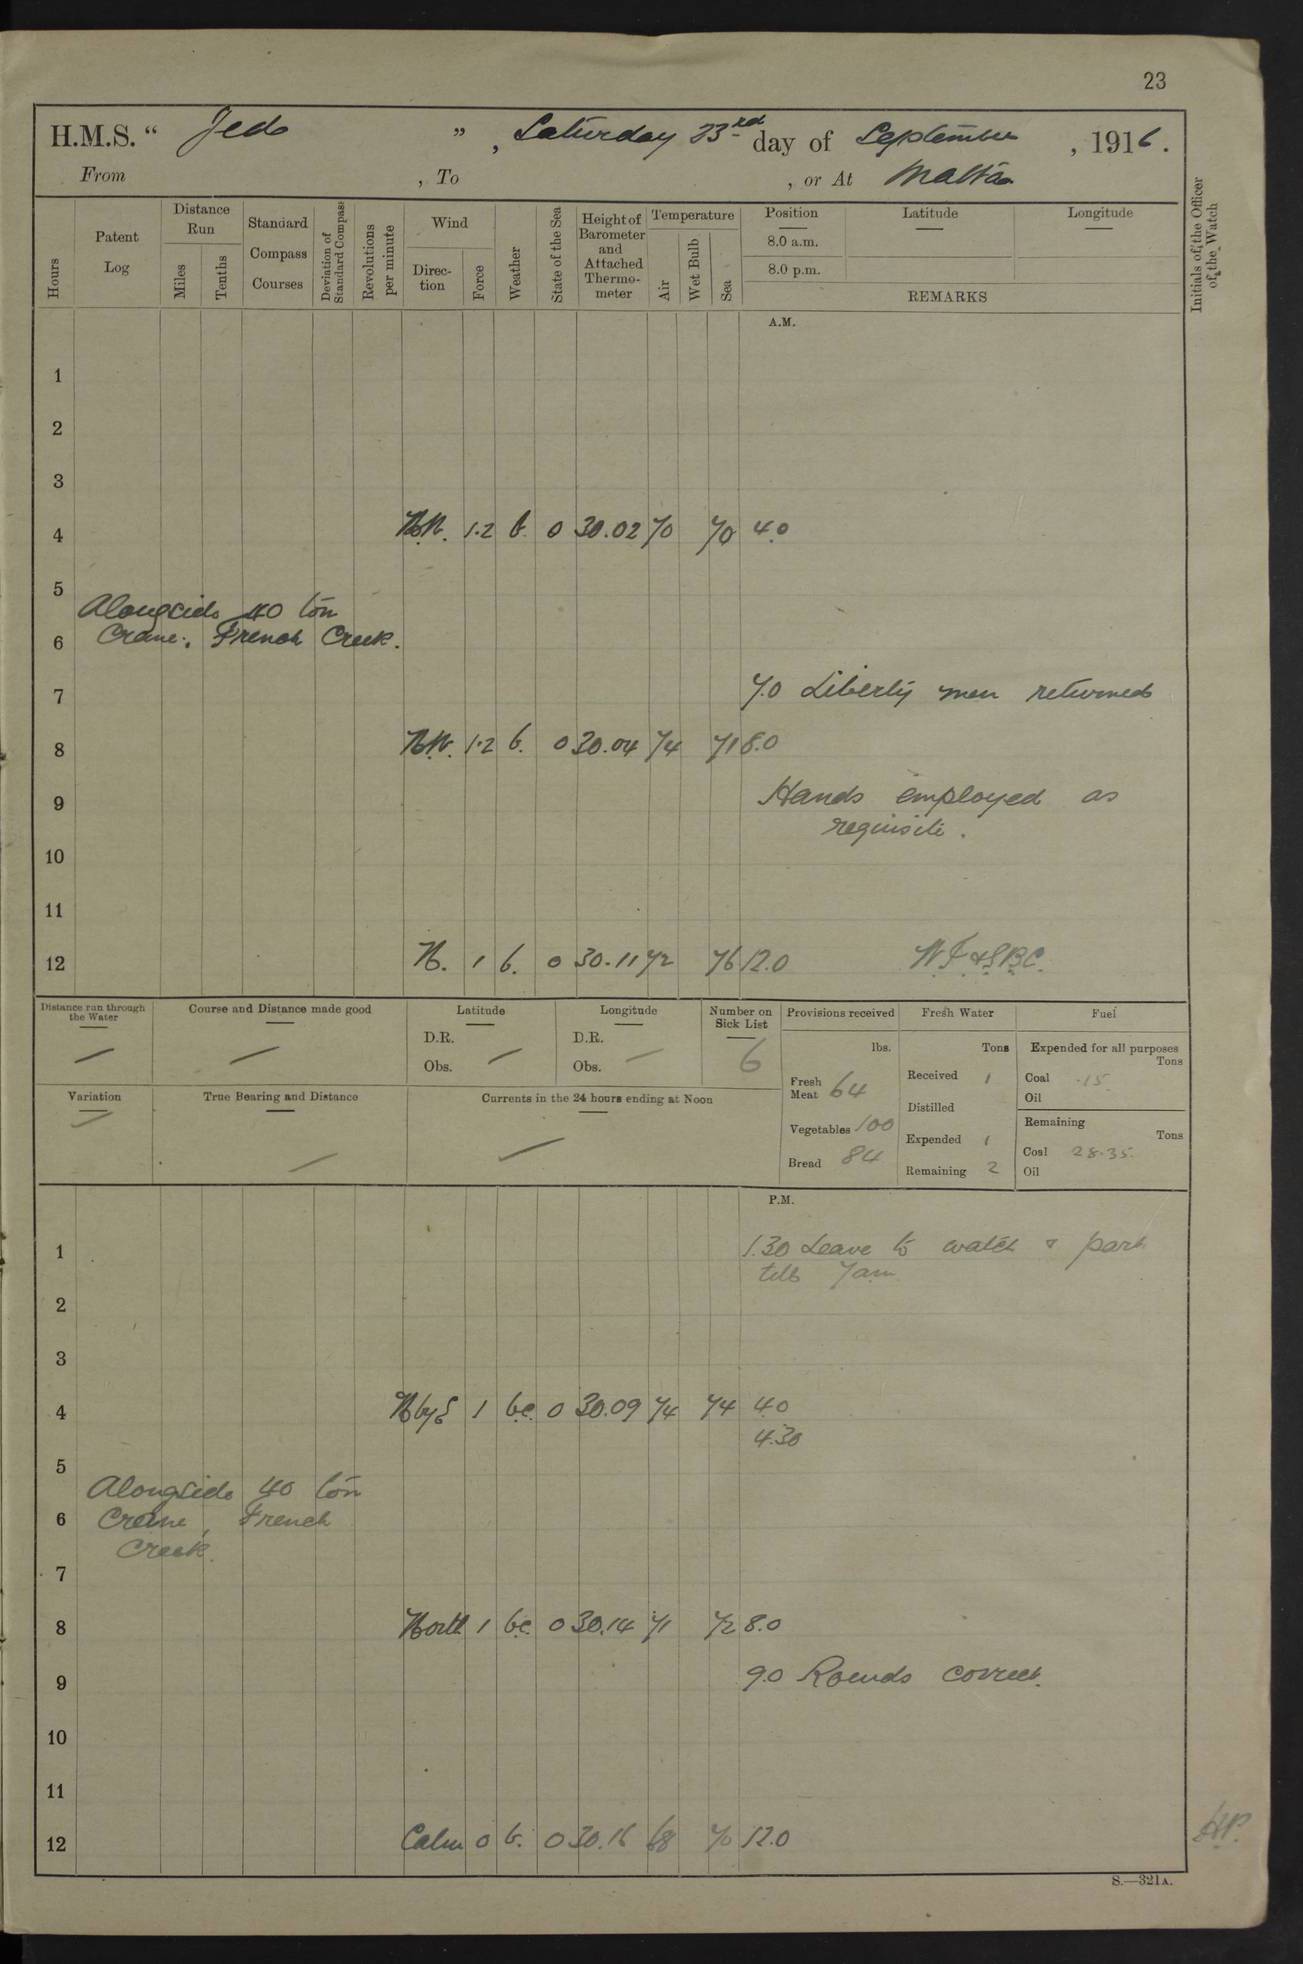 23
H.M.S. " Jed ", Saturday 23rd day of September, 1916.
From , To , or At Malta
Hours
Patent Log
Distance Run
Miles
Tenths
Standard Compass Courses
Deviation of Standard Compass
Revolutions per minute
Wind
Direction
Force
Weather
State of the Sea
Height of Barometer and Attached Thermometer
Temperature
Air
Wet Bulb
Sea
Position
8.0 a.m.
8.0 p.m.
Latitude
Longitude
REMARKS
Initials of the Officer of the Watch
A.M.
1
2
3
4 N.W. 1.2 b. 0 30.02 70 70 4.0
5
Alongside 40 ton
6 Crane, French Creek.
7 7.0 Liberty men returned
8 N.W. 1.2 b. 0 30.04 74 71 8.0
9 Hands employed as
requisite.
10
11
12 N. 1 b. 0 30.11 72 76 12.0
Distance run through the Water
Course and Distance made good
Latitude
D.R.
Obs.
Longitude
D.R.
Obs.
Number on Sick List
6
Provisions received
lbs.
Fresh Meat 64
Vegetables 100
Bread 84
Fresh Water
Tons
Received 1
Distilled
Expended 1
Remaining 2
Fuel
Expended for all purposes
Tons
Coal .15
Oil
Remaining
Tons
Coal 28.35
Oil
Variation
True Bearing and Distance
Currents in the 24 hours ending at Noon
P.M.
1 1.30 Leave to watch & part
till 7am
2
3
4 NbyE 1 bc. 0 30.09 74 74 4.0
4.30
5
Alongside 40 ton
6 Crane, French
Creek.
7
8 North 1 bc. 0 30.14 71 72 8.0
9 9.0 Rounds correct.
10
11
12 Calm 0 b. 0 30.16 68 70 12.0
S.—321A.